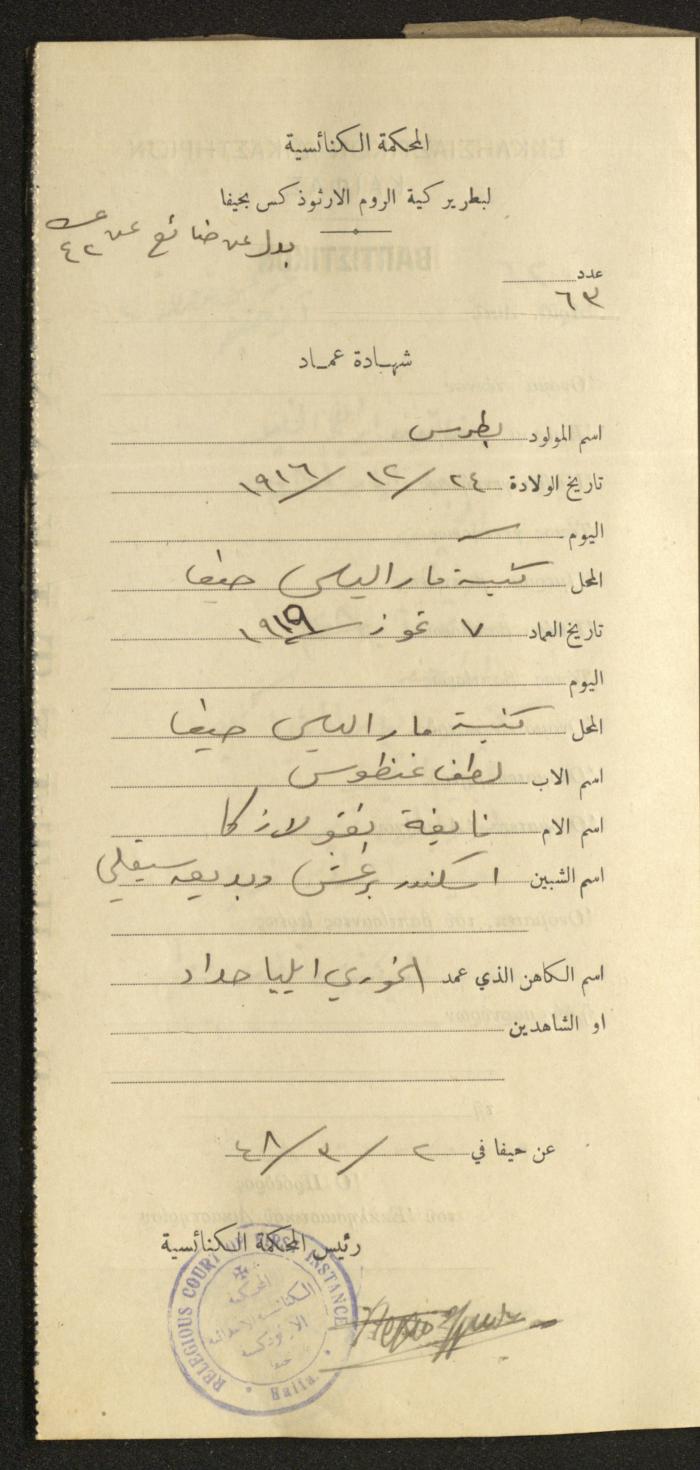 المحكمة الكنائسية
لبطريركية الروم الارثوذكس بحيفا
بدل عن ضائع عن
٤٢
عدد
٦٣
شهادة عماد
اسم المولود بطرس
تاريخ الولادة ٢٤ / ١٢ / ١٩١٦
اليوم —
المحل كنيسة مار الياس حيفا
تاريخ العماد ٧ تموز ١٩١٩
اليوم
المحل كنيسة مار الياس حيفا
اسم الاب لطف غنطوس
اسم الام نايفة نقولا زكا
اسم الشبين اسكندر برغش وبديعه سيقلي
اسم الكاهن الذي عمد الخوري ايليا حداد
او الشاهدين
عن حيفا في ٢ / ٣ / ٤٨
رئيس المحكمة الكنائسية
RELEGIOUS COURT OF FIRST INSTANCE
Haifa